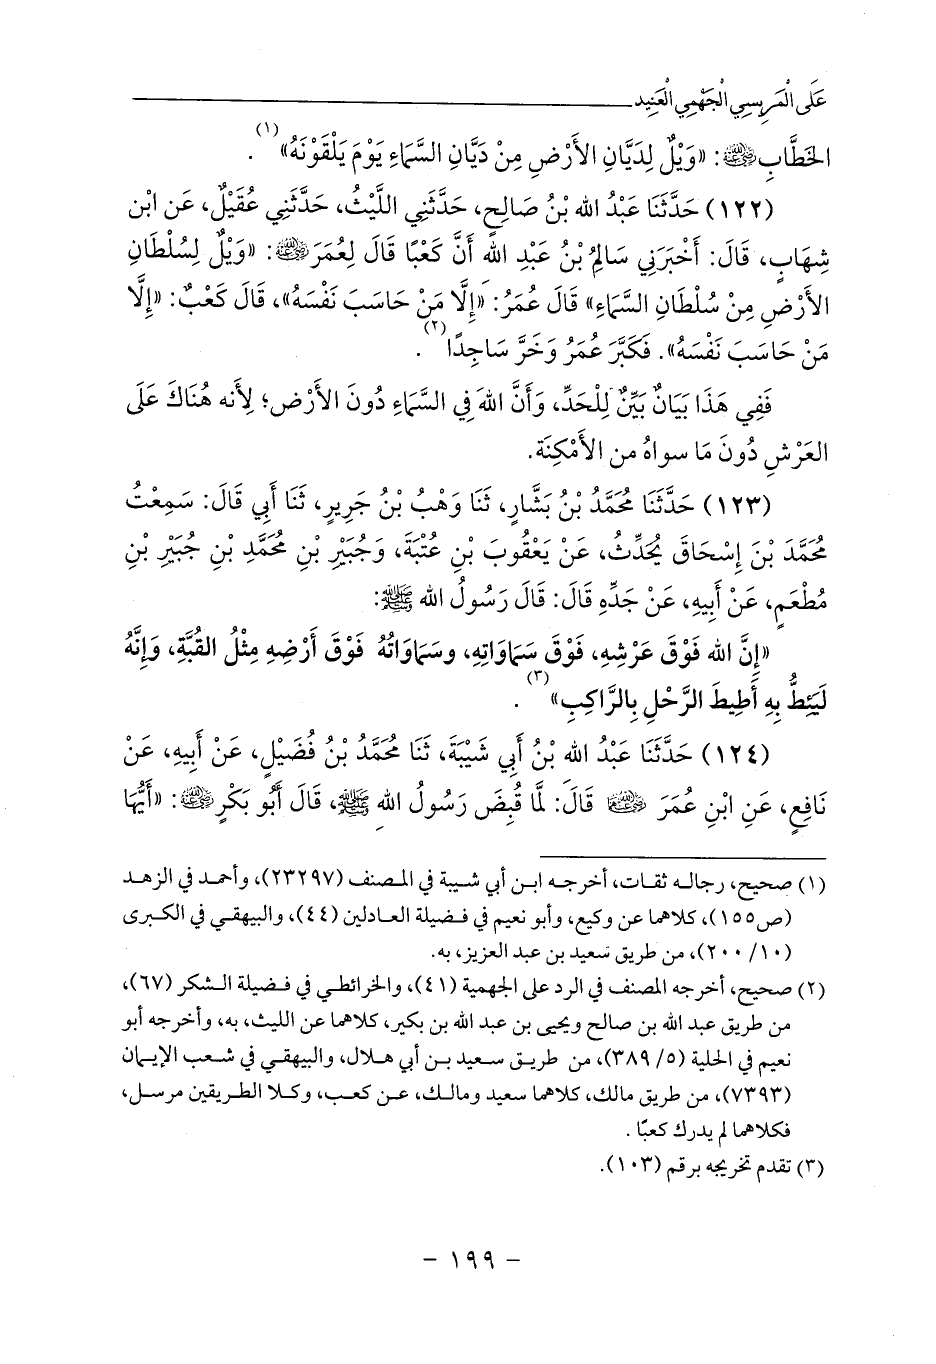 عَلَى الْمَرِيسِي الْجَهْمِي الْعَنِيد
الخَطَّابِ ﵁: «وَيْلٌ لِدَيَّانِ الأَرْضِ مِنْ دَيَّانِ السَّمَاءِ يَوْمَ يَلْقَوْنَهُ»(١).
(١٢٢) حَدَّثَنَا عَبْدُ الله بْنُ صَالِحٍ، حَدَّثَنِي اللَّيْثُ، حَدَّثَنِي عُقَيْلٌ، عَن ابْن
شِهَابٍ، قَالَ: أَخْبَرَنِي سَالِمُ بْنُ عَبْدِ الله أَنَّ كَعْبًا قَالَ لِعُمَرَ ﵁: «وَيْلٌ لِسُلْطَانِ
الأَرْضِ مِنْ سُلْطَانِ السَّمَاءِ» قَالَ عُمَرُ: «إِلَّا مَنْ حَاسَبَ نَفْسَهُ»، قَالَ كَعْبٌ: «إِلَّا
مَنْ حَاسَبَ نَفْسَهُ». فَكَبَّرَ عُمَرُ وَخَرَّ سَاجِدًا(٢).
فَفِي هَذَا بَيَانٌ بَيِّنٌ لِلْحَدِّ، وَأَنَّ اللهَ فِي السَّمَاءِ دُونَ الأَرْض؛ لِأَنه هُنَاكَ عَلَى
العَرْشِ دُونَ مَا سواهُ من الأَمْكِنَة.
(١٢٣) حَدَّثَنَا مُحَمَّدُ بْنُ بَشَّارٍ، ثَنَا وَهْبُ بْنُ جَرِيرٍ، ثَنَا أَبِي قَالَ: سَمِعْتُ
مُحَمَّدَ بْنَ إِسْحَاقَ يُحَدِّثُ، عَنْ يَعْقُوبَ بْنِ عُتْبَةَ، وَجُبَيْرِ بْنِ مُحَمَّدِ بْنِ جُبَيْرِ بْنِ
مُطْعَمٍ، عَنْ أَبِيهِ، عَنْ جَدِّهِ قَالَ: قَالَ رَسُولُ الله ﷺ:
«إِنَّ الله فَوْقَ عَرْشِهِ، فَوْقَ سَمَاوَاتِهِ، وسَمَاوَاتُهُ فَوْقَ أَرْضِهِ مِثْلُ القُبَّةِ، وَإِنَّهُ
لَيَئِطُّ بِهِ أَطِيطَ الرَّحْلِ بِالرَّاكِبِ»(٣).
(١٢٤) حَدَّثَنَا عَبْدُ الله بْنُ أَبِي شَيْبَةَ، ثَنَا مُحَمَّدُ بْنُ فُضَيْلٍ، عَنْ أَبِيهِ، عَنْ
نَافِعٍ، عَنِ ابْنِ عُمَرَ ﵁ قَالَ: لَمَّا قُبِضَ رَسُولُ اللهِ ﷺ، قَالَ أَبُو بَكْرٍ ﵁: «أَيُّهَا
(١) صحيح، رجاله ثقات، أخرجه ابن أبي شيبة في المصنف (٢٣٢٩٧)، وأحمد في الزهد
(ص١٥٥)، كلاهما عن وكيع، وأبو نعيم في فضيلة العادلين (٤٤)، والبيهقي في الكبرى
(١٠/ ٢٠٠)، من طريق سعيد بن عبد العزيز، به.
(٢) صحيح، أخرجه المصنف في الرد على الجهمية (٤١)، والخرائطي في فضيلة الشكر (٦٧)،
من طريق عبد الله بن صالح ويحيى بن عبد الله بن بكير، كلاهما عن الليث، به، وأخرجه أبو
نعيم في الحلية (٥/ ٣٨٩)، من طريق سعيد بن أبي هلال، والبيهقي في شعب الإيمان
(٧٣٩٣)، من طريق مالك، كلاهما سعيد ومالك، عن كعب، وكلا الطريقين مرسل،
فكلاهما لم يدرك كعبًا.
(٣) تقدم تخريجه برقم (١٠٣).
- ١٩٩ -